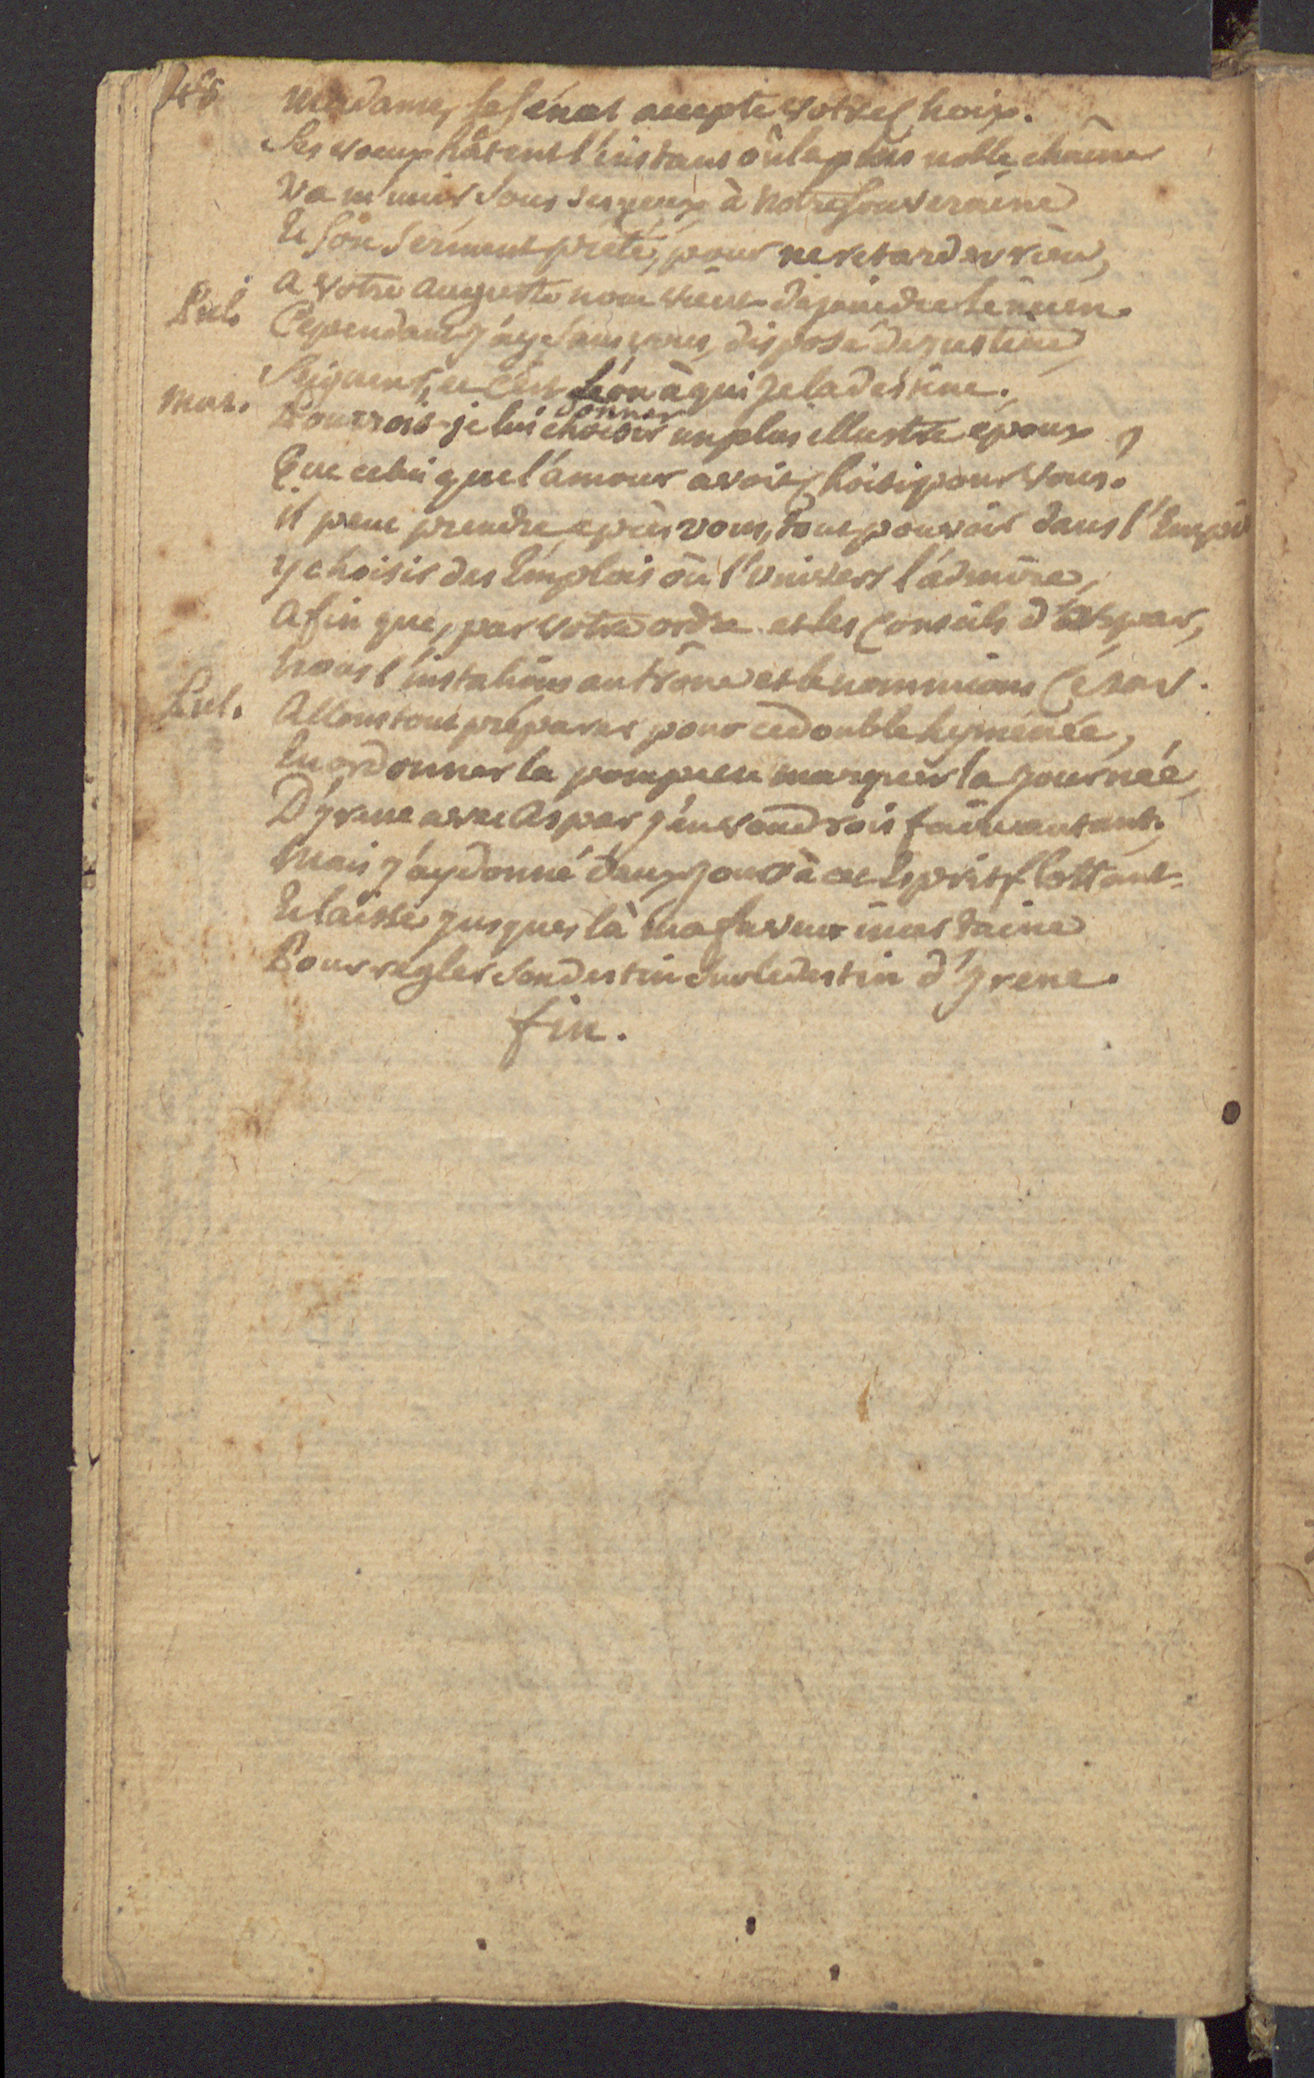 48 Madame, le Sénat accepte votre choix.
Ses voeux hâtent l'instant où la plus noble chaîne
va m'unir sous ses yeux à notre souveraine
Et son serment prêté, pour ne retarder rien,
a votre auguste nom vient d'ajoindre le mien.
Pul. Cependant j'ay sans vous, disposé de justine,
Seigneur, et c'est Léon à qui je la destine.
mar. Pourrois-je lui choisir donner un plus illustre époux
Que celui que l'amour avoit choisi pour vous.
il peut prendre après vous, tout pouvoir dans l'Empire
y choisir des Emplois où l'univers l'admire,
afin que, par votre ordre et les conseils d'aspar,
nous l'instalions au trône et le nommions César.
Pul. Allons tout préparer pour ce double hyménée,
En ordonner la pompe et en marquer la journée,
D'yrene avec aspar j'en voudrois faire autant,
mais j'ay donné deux jours à cet Esprit flottant
Et laisse jusques là ma faveur incertaine
Pour regler son destin sur le destin d'yrene.
fin.